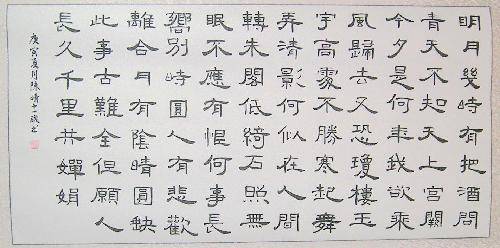 明月幾時有把酒問
青天不知天上宮闕
今夕是何年我欲乘
風歸去又恐瓊樓玉
宇高處不勝寒起舞
弄清影何似在人間
轉朱閣低綺戶照無
眠不應有恨何事長
嚮別時圓人有悲歡
離合月有陰晴圓缺
此事古難全但願人
長久千里共嬋娟
庚寅夏月陳